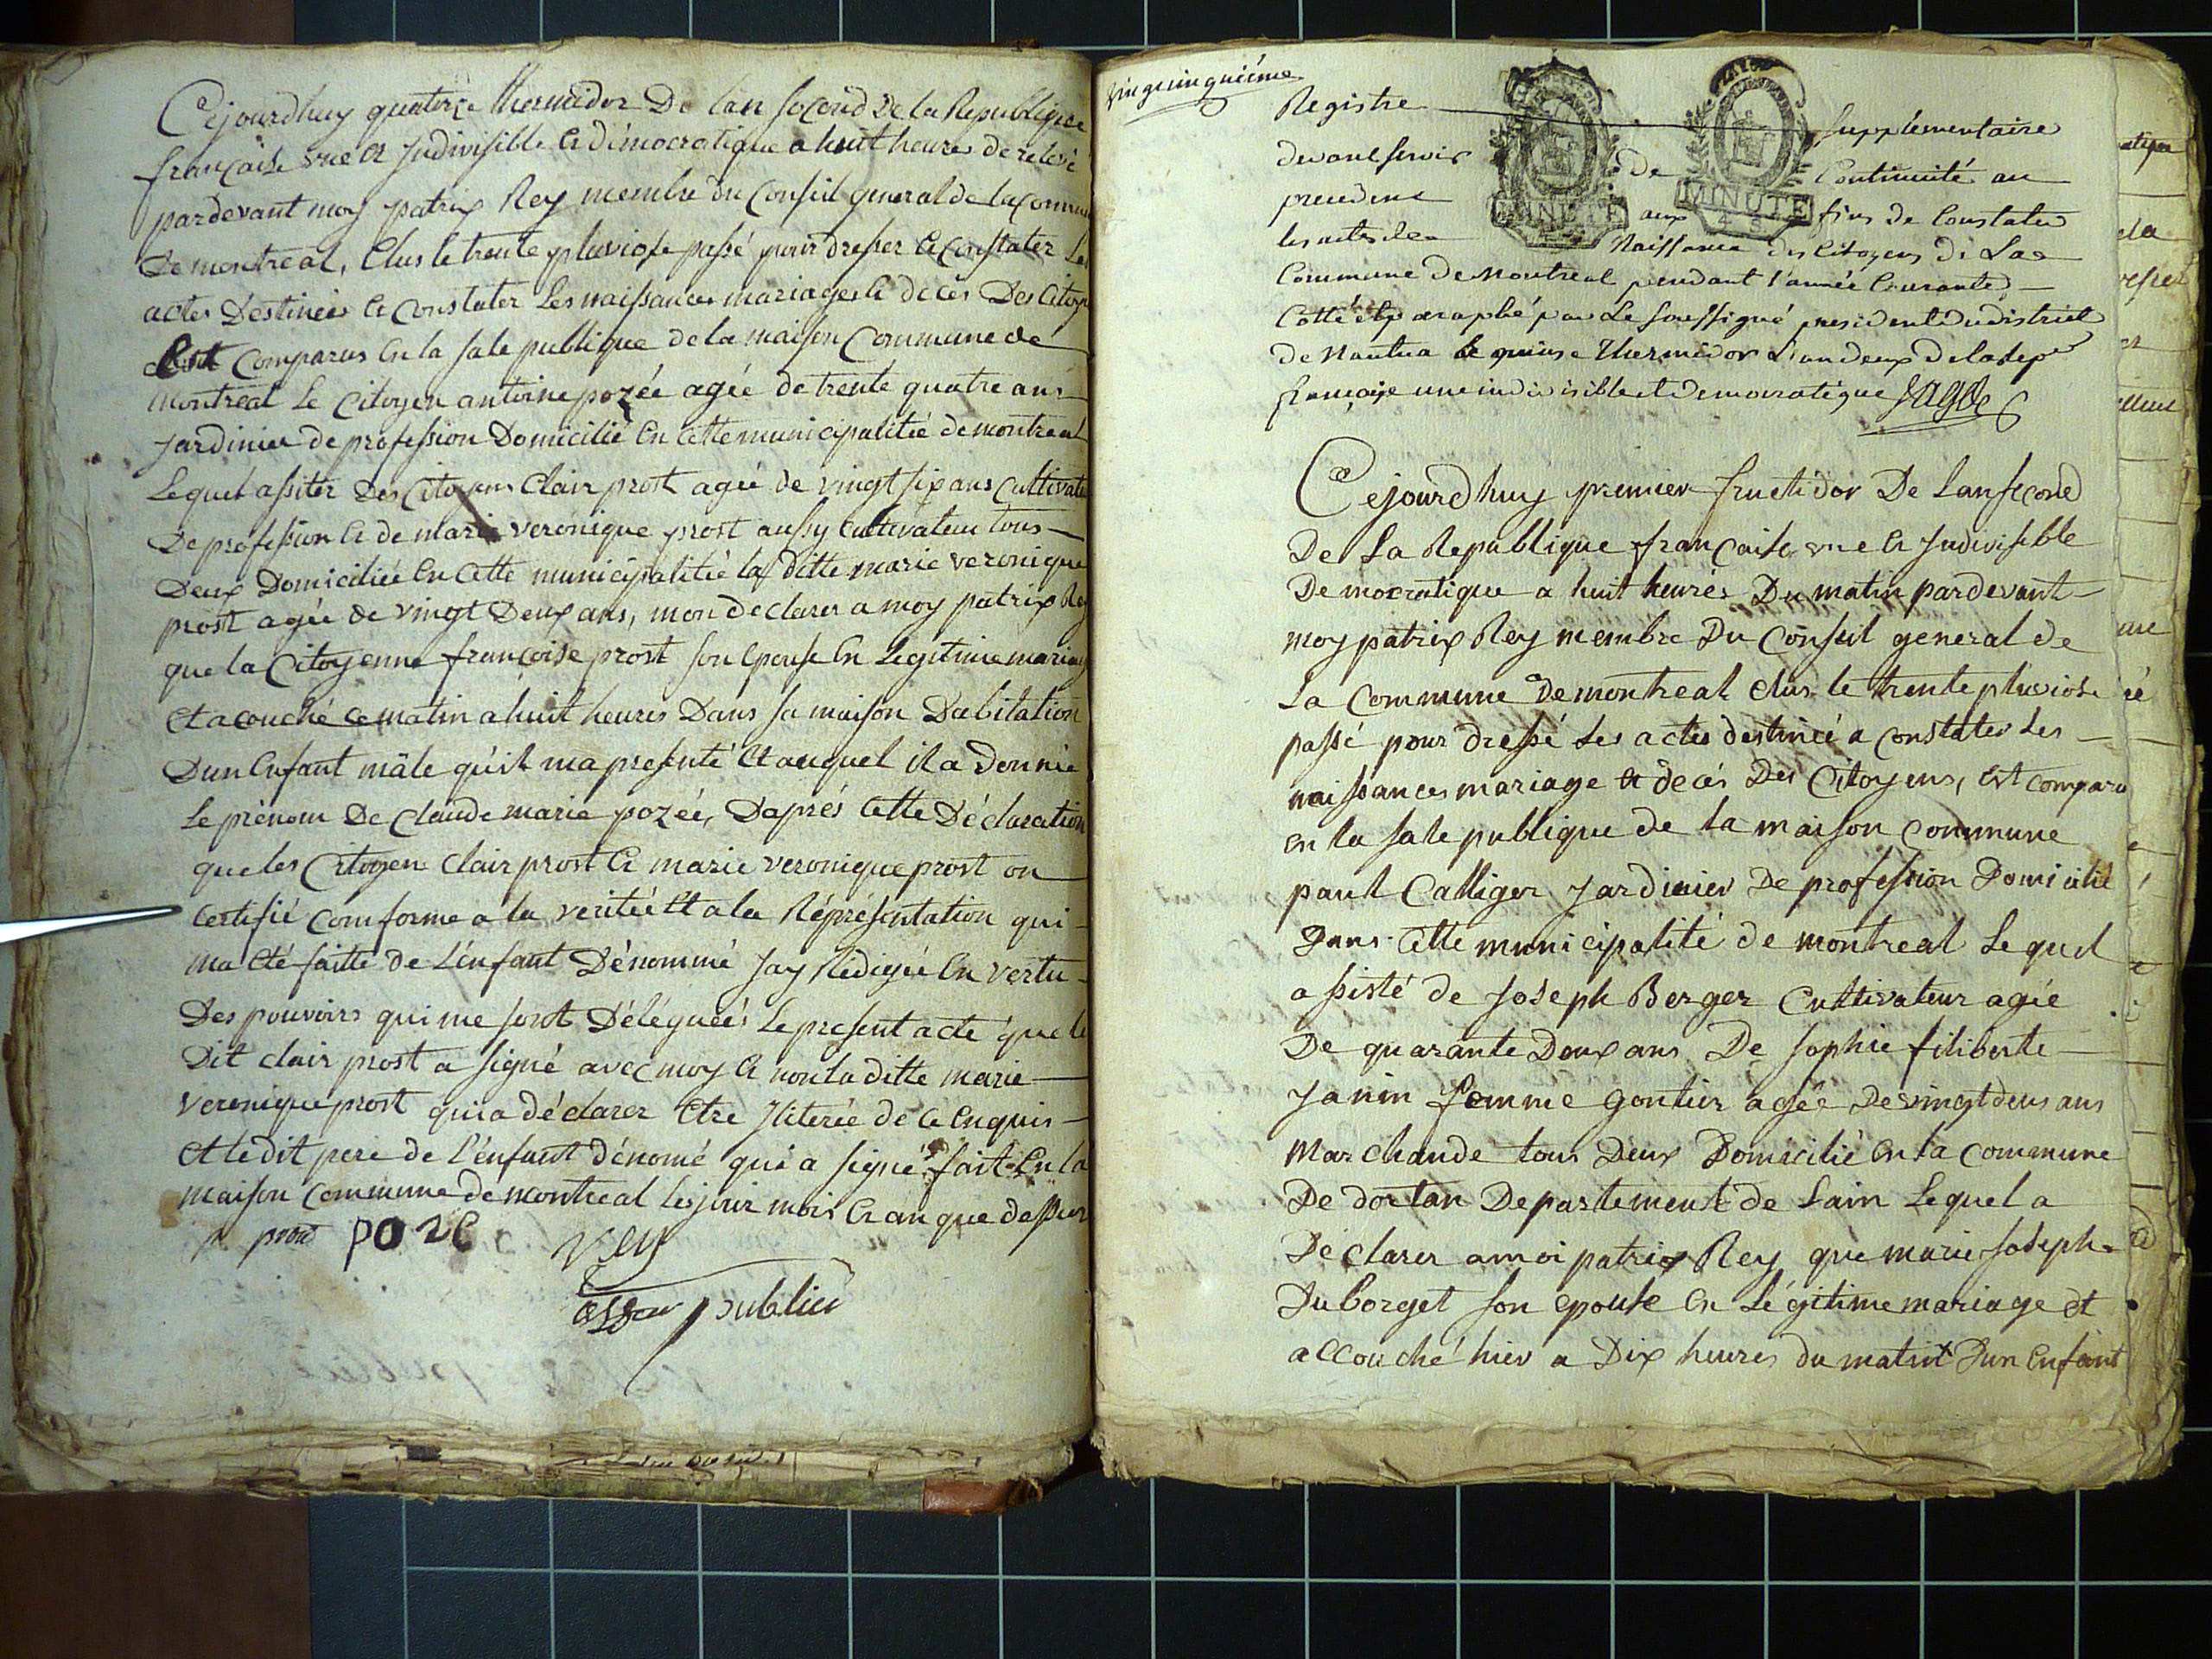 Cejourdhuy quatorze thermidor De lan second De la Republique
française une et Indivisible et démocratique a huit heures de relevé
pardevant moy patrix Rey membre du Conseil general de la commune
De montreal, Elus le trente pluviose passé pour dresser et constater Les
actes Destinées a Constater Les naissances mariages et décès Des Citoy
est Comparus En la sale publique de la maison Commune de
montreal Le Citoyen antoine pozée agée de trente quatre ans
jardinier de profession Domicilié En cette municipalitée de montreal
Lequel assiter Des Citoyens Clair prost agée de vingt six ans Cultivate
De profession et de marie veronique prost aussy Cultivateur tous
Deux Domiciliée En cette municipalitée la ditte marie veronique
prost agée de vingt Deux ans, mon declarer a moy patrix Rey
que la Citoyenne françoise prost son Epouse En Legitime mariag
Et acouché ce matin a huit heures Dans sa maison Dabitation
Dun Enfant mâle qu'il ma presenté Et auquel il a Donnée
Le prénom De Claude marie pozée, Daprés Cette Déclaration
que les Citoyen Clair prost Et marie veronique prost on
Certifié Comforme a la veritée Et a la Réprésentation qui
ma Eté faitte de L'enfant Dénommé Jay Rédigée En vertu
Des pouvoirs qui me sont Délégueés Le present acte que le
Dit clair prost a signé avec moy Et non la ditte marie
veronique prost qui a déclarer Etre Iliterée de Ce Enquis
Et le dit pere de l'énfant dénomé qui a signé fait En la
maison Commune de montreal les jour mois Et an que dessus
prost pozé Rey
officier publicu
vingcinquiéme
Registre supplémentaire
devant servir de Continuité au
precedent aux fins de Constater
les actes de Naissance des Citoyens de La
Commune de Montreal pendant l'année Courante
Cotté et paraphé par Le soussigné president du district
de Nantua le quinse Thermidor L'an deux de la Rep
française une indivisible et democratique
Cejourdhuy premier fructidor De Lan second
De La Republique française une Et Indivisible
Democratique a huit heures Du matin pardevant
moy patrix Rey membre Du Conseil general de
La Commune De montreal élus le trente pluviose
passé pour dressé Les actes destinée a constater Les
naissances mariage et decés Des Citoyens, Est comparu
en la sale publique de la maison commune
paul Calliger jardinier De profession Domicilié
Dans Cette municipalité de montreal Lequel
assisté de Joseph Berger Cultivateur agée
De quarante Deux ans De sophie filiberte
Janin femme gontier agée De vingt deus ans
Marchande tous Deux Domicilié En la commune
De dortan Departement de Lain Lequel a
Déclarer a moi patrix Rey que marie Joseph
Duborget son epouse En Légitime mariage et
accouché hier a Dix heures du matin Dun Enfant
MINUTE
MINUTE